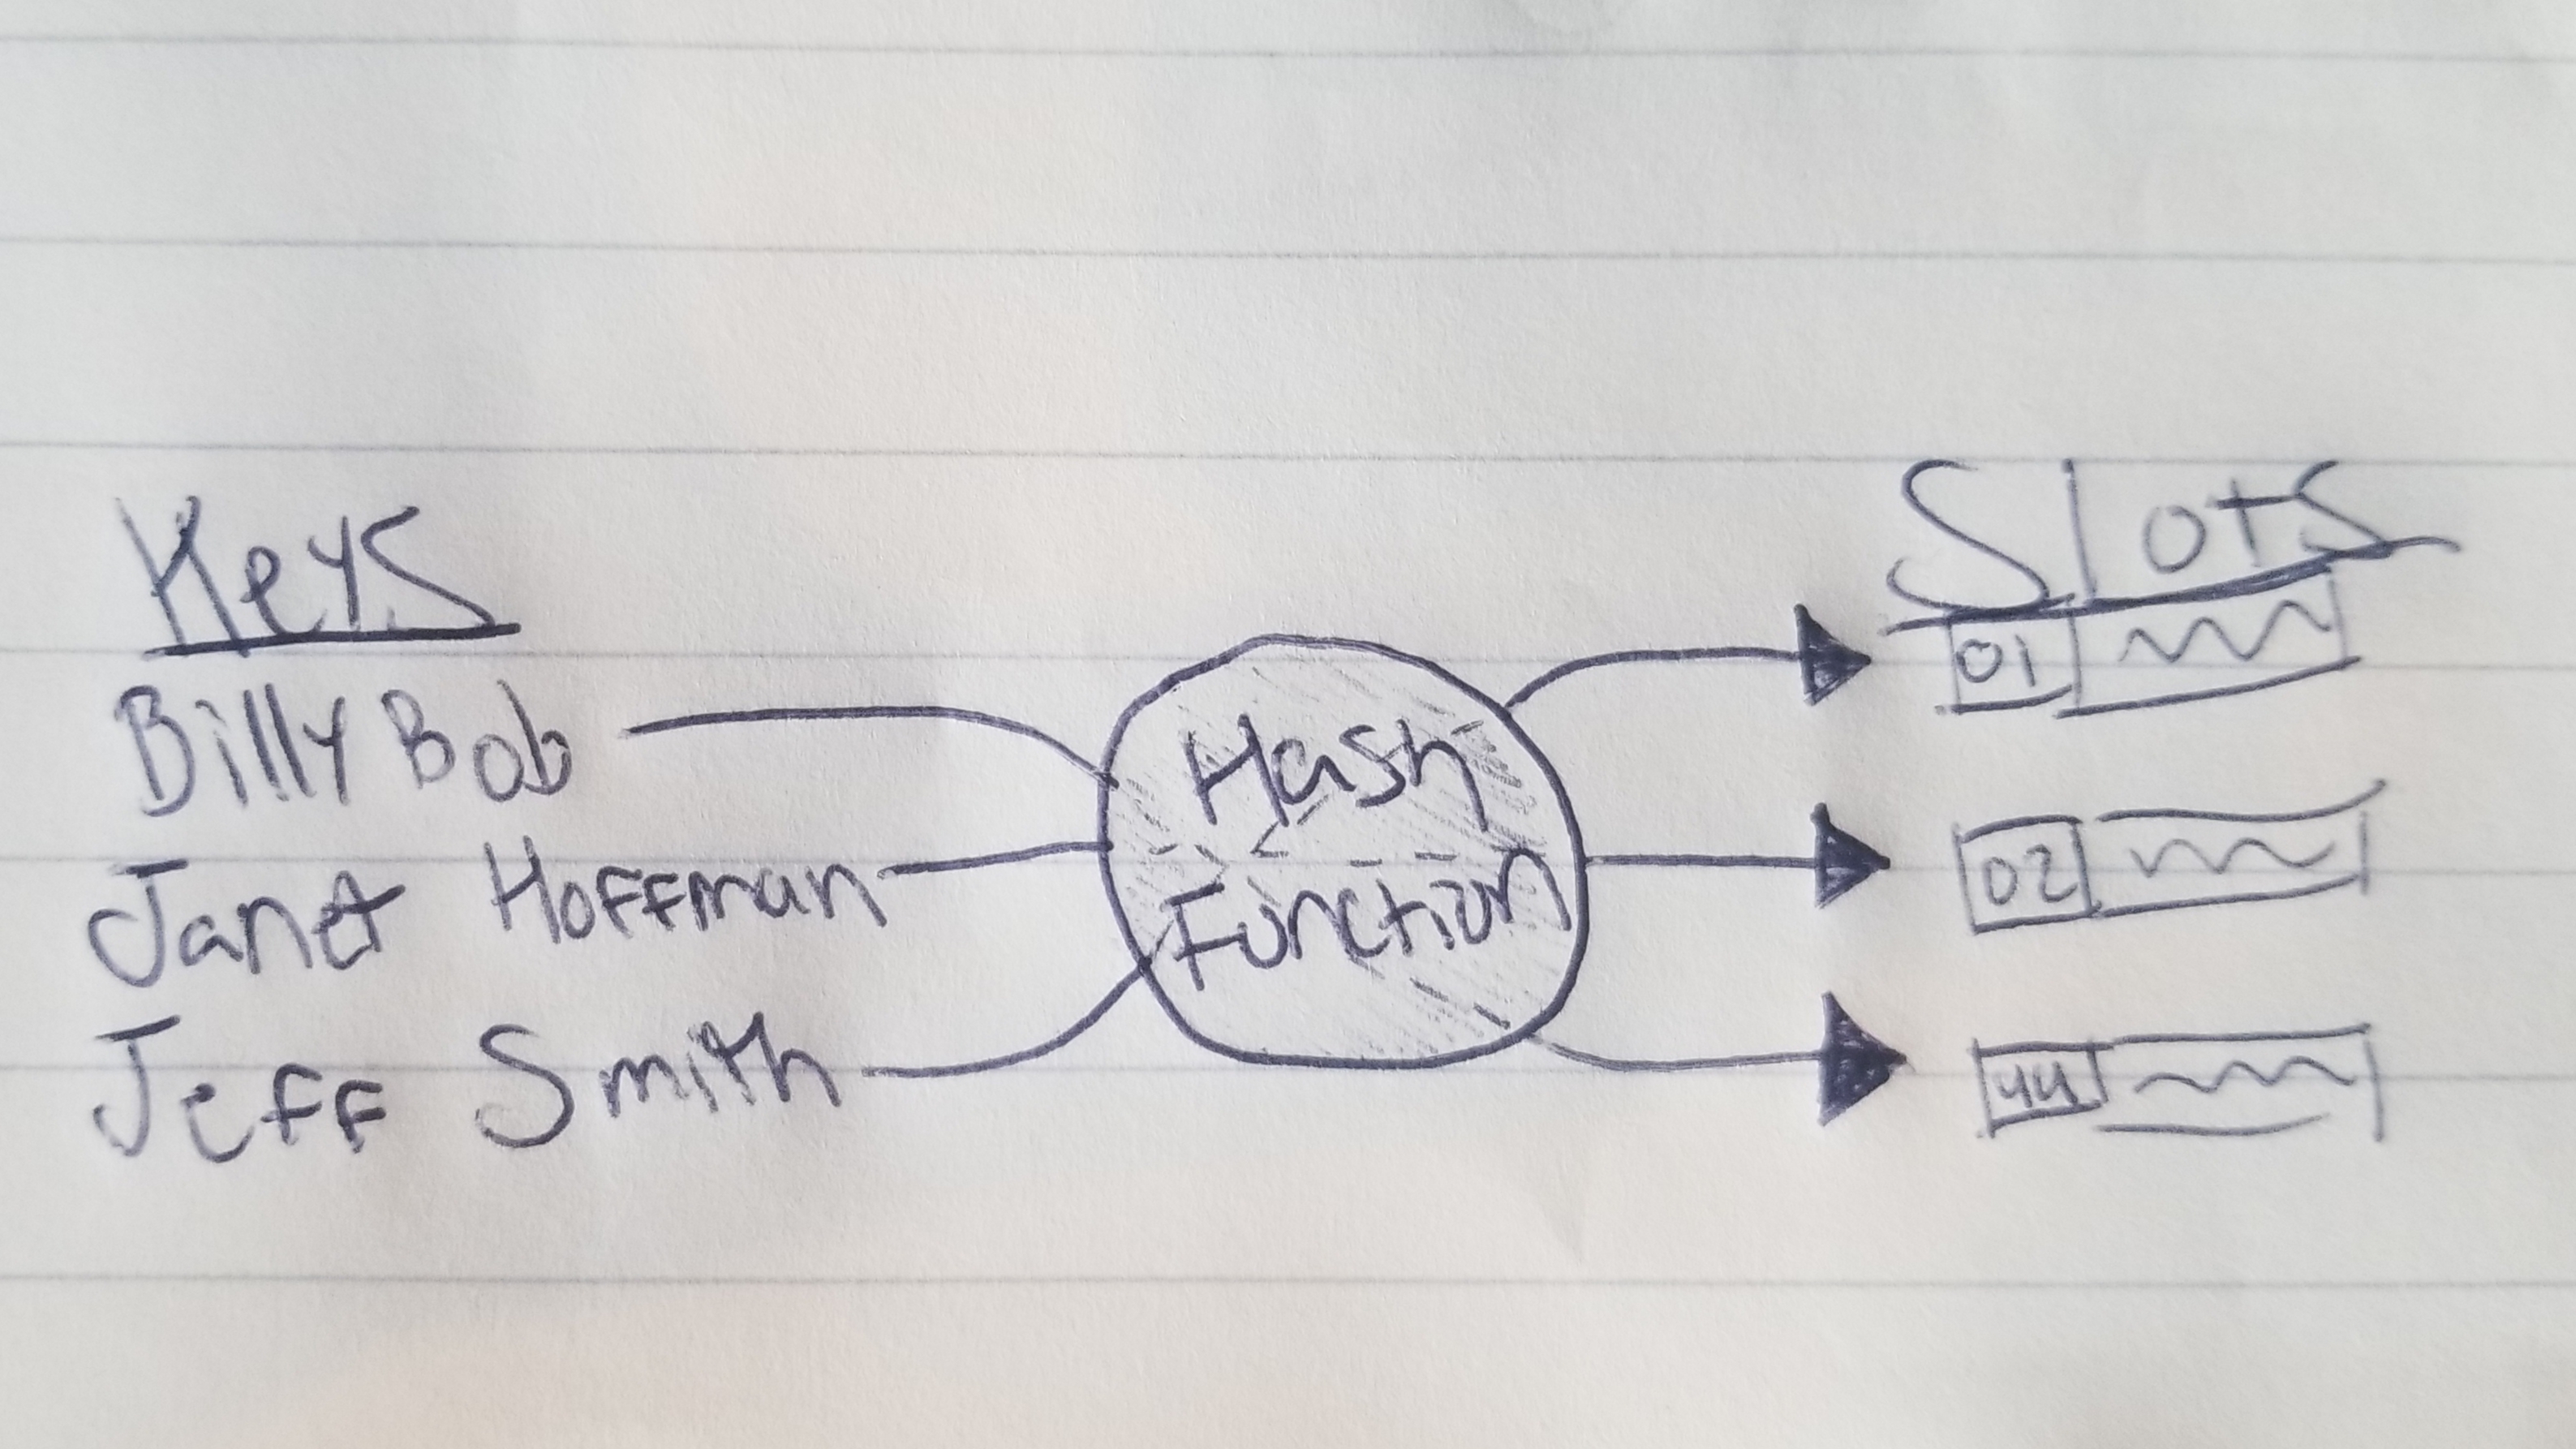 Keys
Billy Bob
Janet Hoffman
Jeff Smith
Hash
Function
Slots
01
02
44